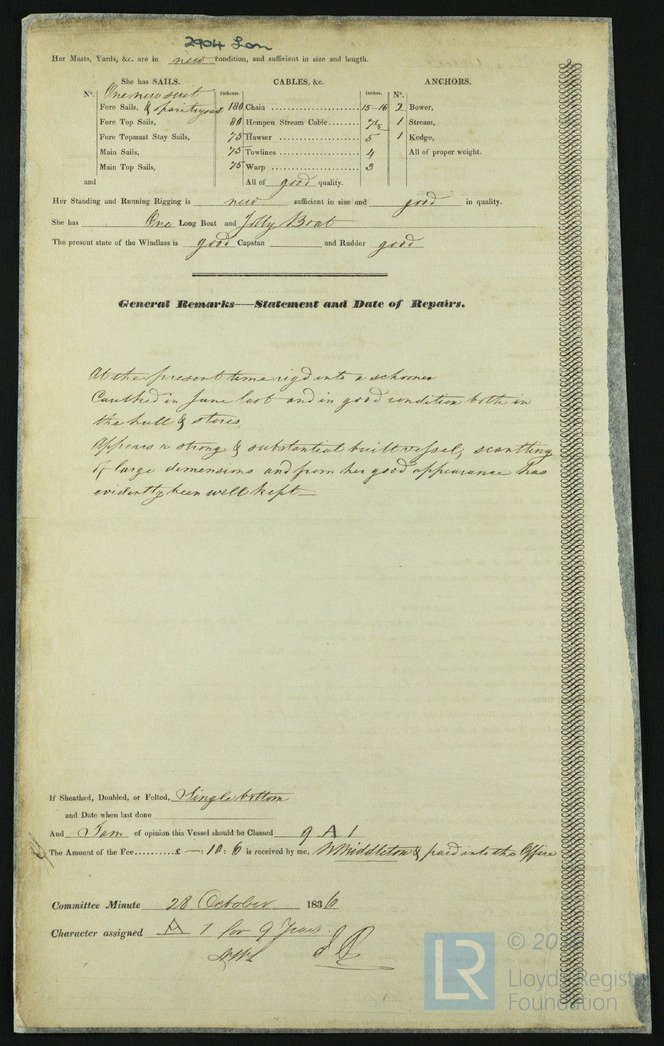 2904 Lon
Her Masts, Yards, &c. are in new condition, and sufficient in size and length.
She has SAILS. CABLES, &c. ANCHORS.
N°. One new suit Fathoms. Inches. N°.
Fore Sails, & spare trysail 180 Chain .................... 15-16 2 Bower,
Fore Top Sails, 80 Hempen Stream Cable........ 7½ 1 Stream,
Fore Topmast Stay Sails, 75 Hawser .................... 5 1 Kedge,
Main Sails, 75 Towlines .................... 4 All of proper weight.
Main Top Sails, 75 Warp .................... 3
and All of good quality.
Her Standing and Running Rigging is new sufficient in size and good in quality.
She has One Long Boat and Jolly Boat
The present state of the Windlass is good Capstan and Rudder good
General Remarks—Statement and Date of Repairs.
At the present time rigd into a schooner
Caulked in June last and in good condition both in
the hull & stores
Appears a strong & substantial built vessel, scantling
of large dimensions and from her good appearance has
evidently been well kept—
If Sheathed, Doubled, or Felted, Single bottom
and Date when last done
And I am of opinion this Vessel should be Classed 9 A 1
The Amount of the Fee..........£ —: 10: 6 is received by me, W Middleton & paid into the Office
Committee Minute 28 October 1836
Character assigned A 1 for 9 Years
LR
© 20
Lloyd's Register
Foundation